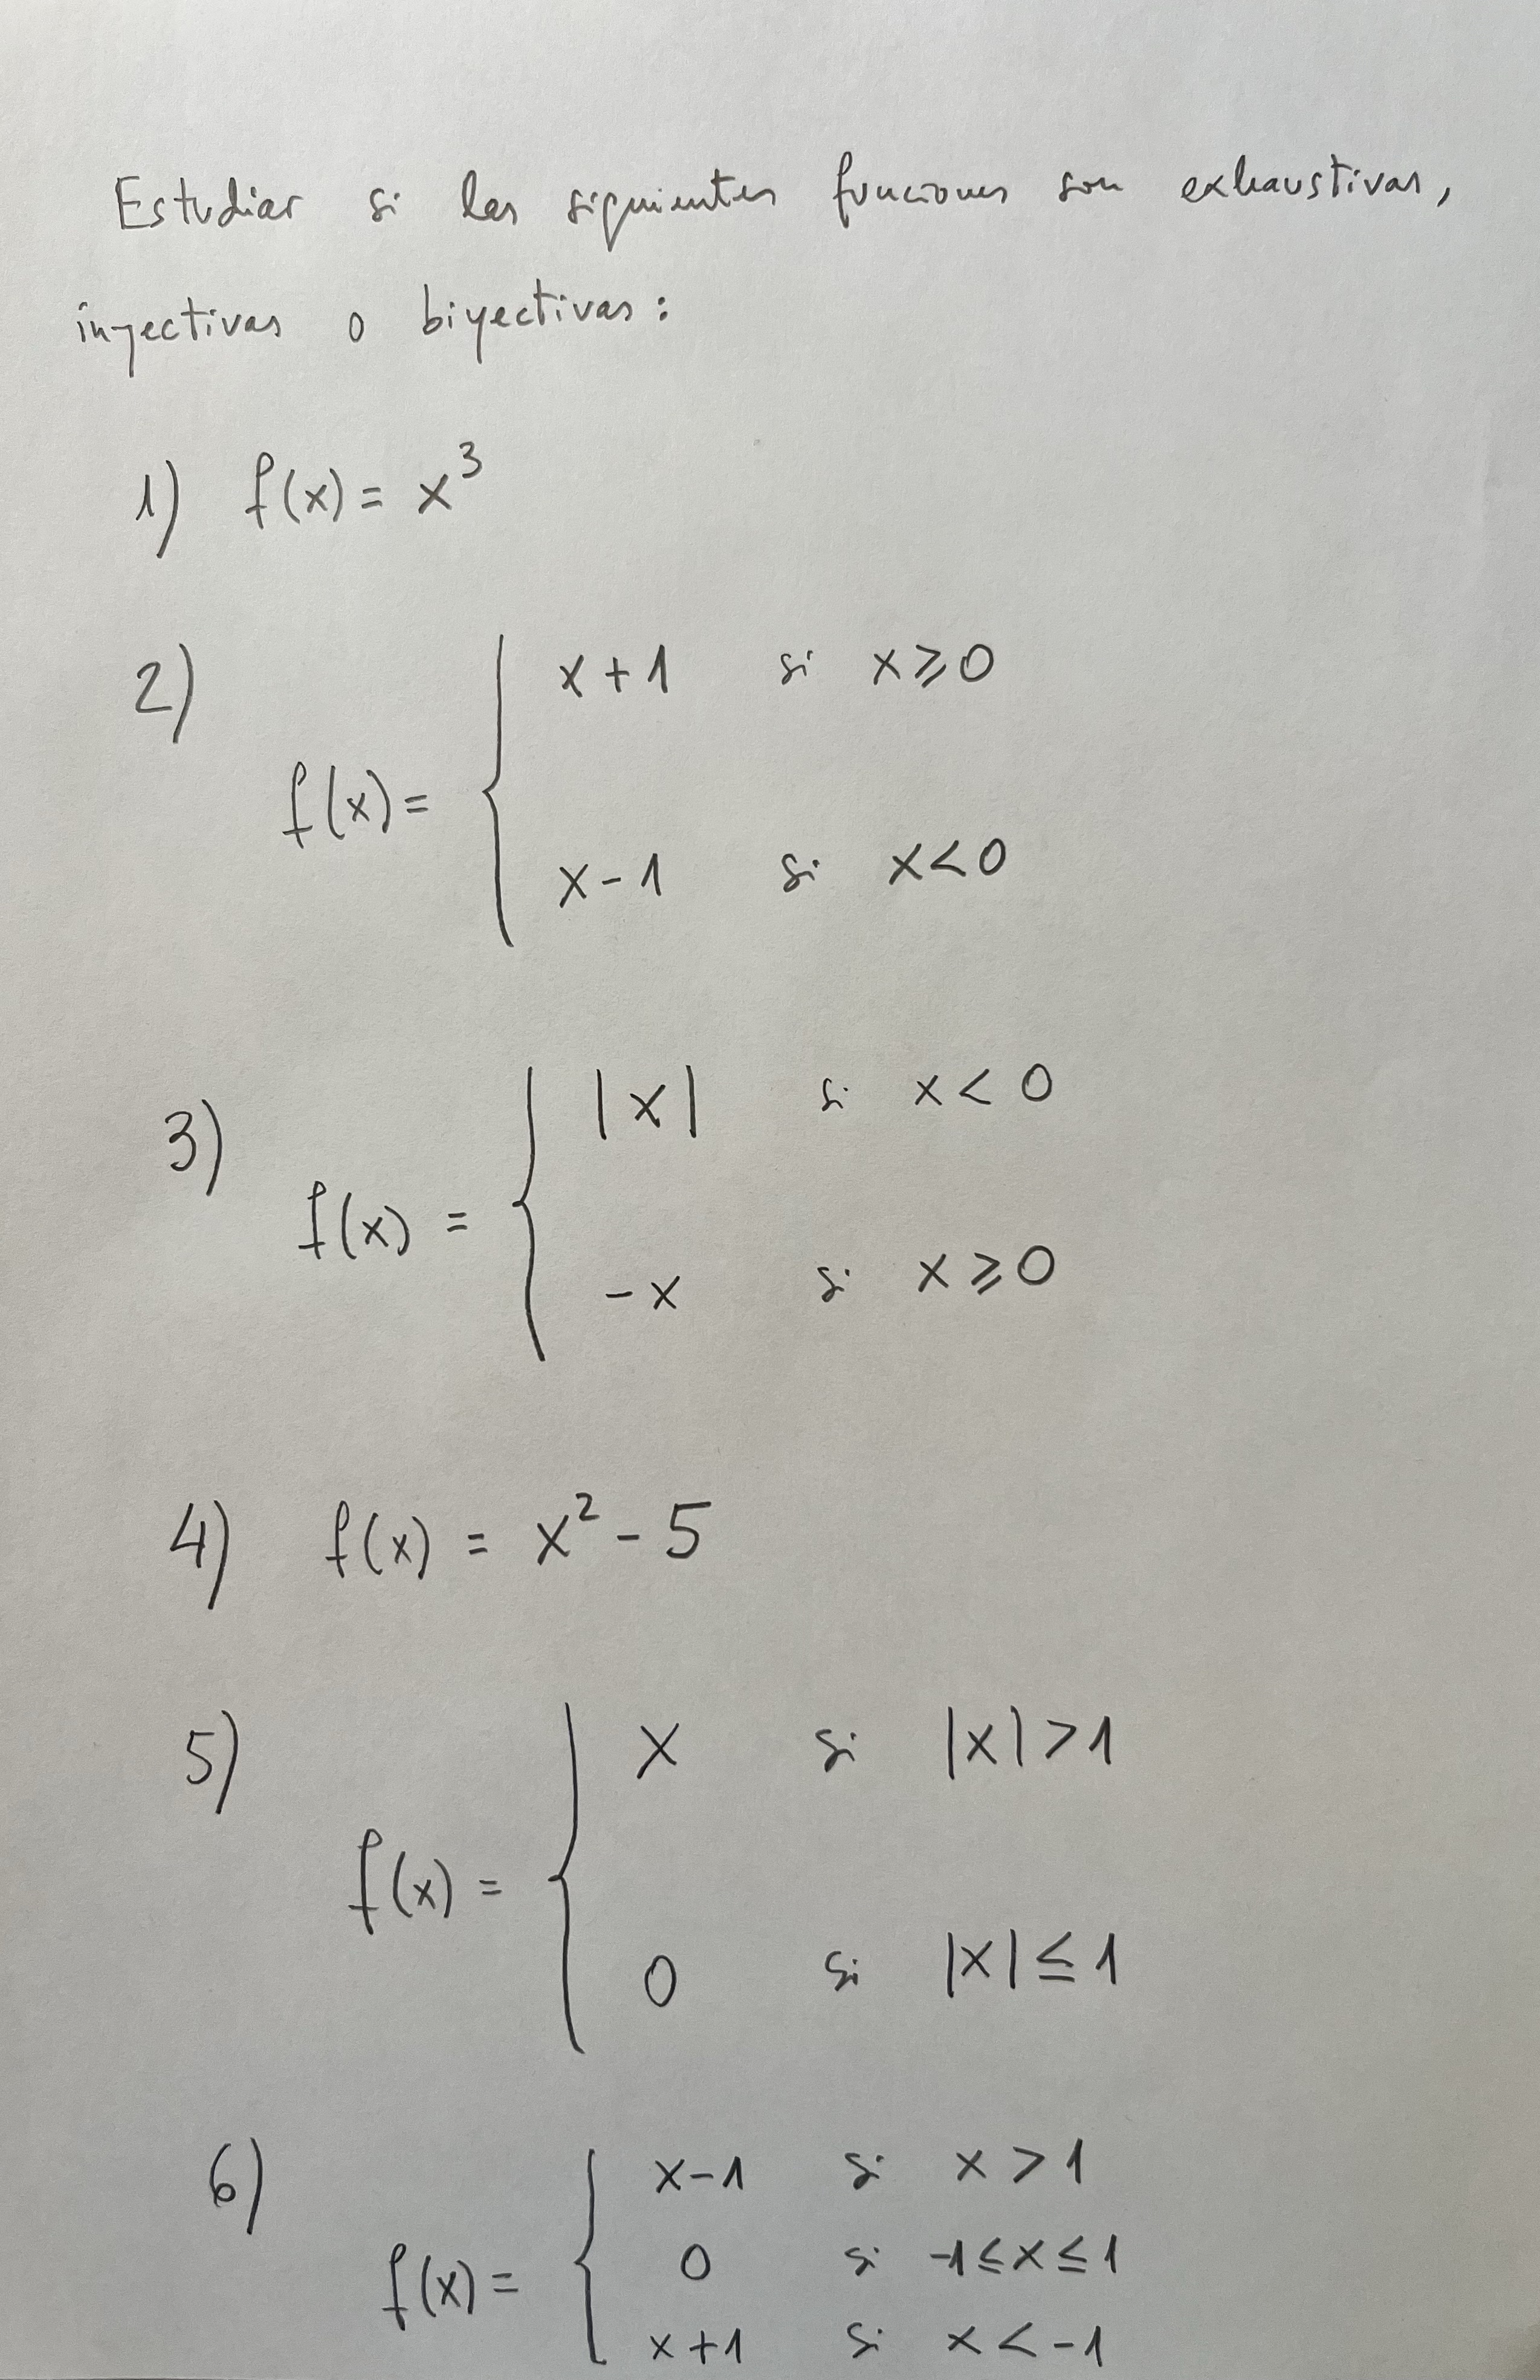 Estudiar si las siguientes funciones son exhaustivas,
inyectivas o biyectivas:
1) f(x) = x³
2)
x + 1 si x ⩾ 0
f(x) =
x - 1 si x < 0
3)
|x| si x < 0
f(x) =
- x si x ⩾ 0
4) f(x) = x² - 5
5)
x si |x| > 1
f(x) =
0 si |x| ≤ 1
6)
x - 1 si x > 1
0 si -1 ≤ x ≤ 1
f(x) =
x + 1 si x < -1